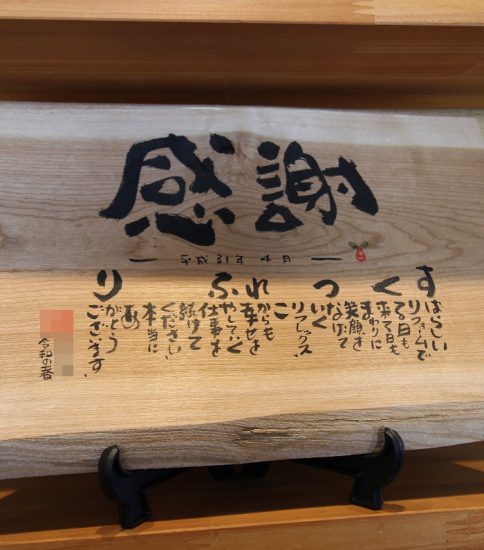 感謝
平成31年 4月
すばらしい
リフォームで
くる日も
来る日も
まわりに
笑顔を
つなげて
いく
リフレックス
こ
れからも
幸せを
ふやしていく
仕事を
続けて
ください
本当に
あ
りがとう
ございます。
令和の春